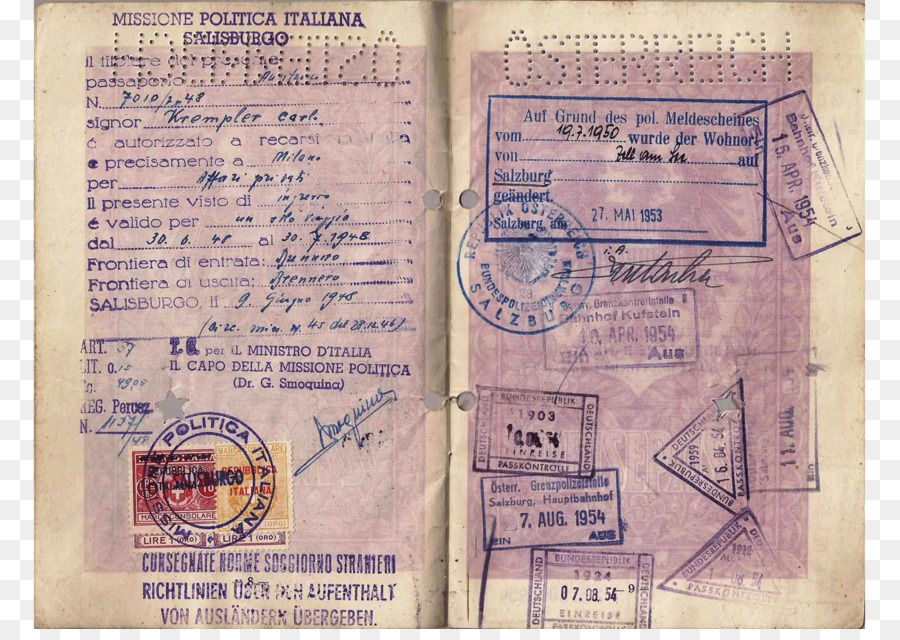 MISSIONE POLITICA ITALIANA
SALISBURGO
Il titolare del presente
passaporto
N. 7010/2.48
signor Krempler Carl
é autorizzato a recarsi in Italia
e precisamente a Milano
per Affari privati
Il presente visto di ingresso
é valido per un solo viaggio
dal 30. 6. 48 al 30. 7. 1948
Frontiera di entrata: Brennero
Frontiera di uscita: Brennero
SALISBURGO, il 9 Giugno 1948
(circ. min. N. 45 del 28.12.46)
ART.
T.O. per IL MINISTRO D'ITALIA
IL CAPO DELLA MISSIONE POLITICA
(Dr. G. Smoquina)
REG. Percez.
N. 1137/48
POLITICA ITALIANA
SALISBURGO
REPUBBLICA
ITALIANA
MARCA CONSOLARE
LIRE 1 (ORO)
LIRE 1 (ORO)
CONSEGNATE NORME SOGGIORNO STRANIERI
RICHTLINIEN ÜBER DEN AUFENTHALT
VON AUSLÄNDERN ÜBERGEBEN.
ÖSTERREICH
Auf Grund des pol. Meldescheines
vom 19.7.1950 wurde der Wohnort
von Zell am See auf
Salzburg
geändert.
Salzburg, am 27. MAI 1953
i.A.
REPUBLIK ÖSTERREICH
BUNDESPOLIZEIDIREKTION
28
SALZBURG
Bahnhof Kufstein
16. APR. 1954
Aus
Österr. Grenzkontrollstelle 8
Bahnhof Kufstein
APR. 1954
Ein Aus
BUNDESREPUBLIK
DEUTSCHLAND
1903
EINREISE
PASSKONTROLLE
Österr. Grenzpolizeistelle
Salzburg, Hauptbahnhof
7. AUG. 1954
EIN AUS
BUNDESREPUBLIK
DEUTSCHLAND
07.08.54
EINREISE
PASSKONTROLLE
DEUTSCHLAND
1959
16.04.54
BUNDESREPUBLIK
PASSKONTROLLE
11. AUG.
BUNDESREPUBLIK
PASSKONTROLLE